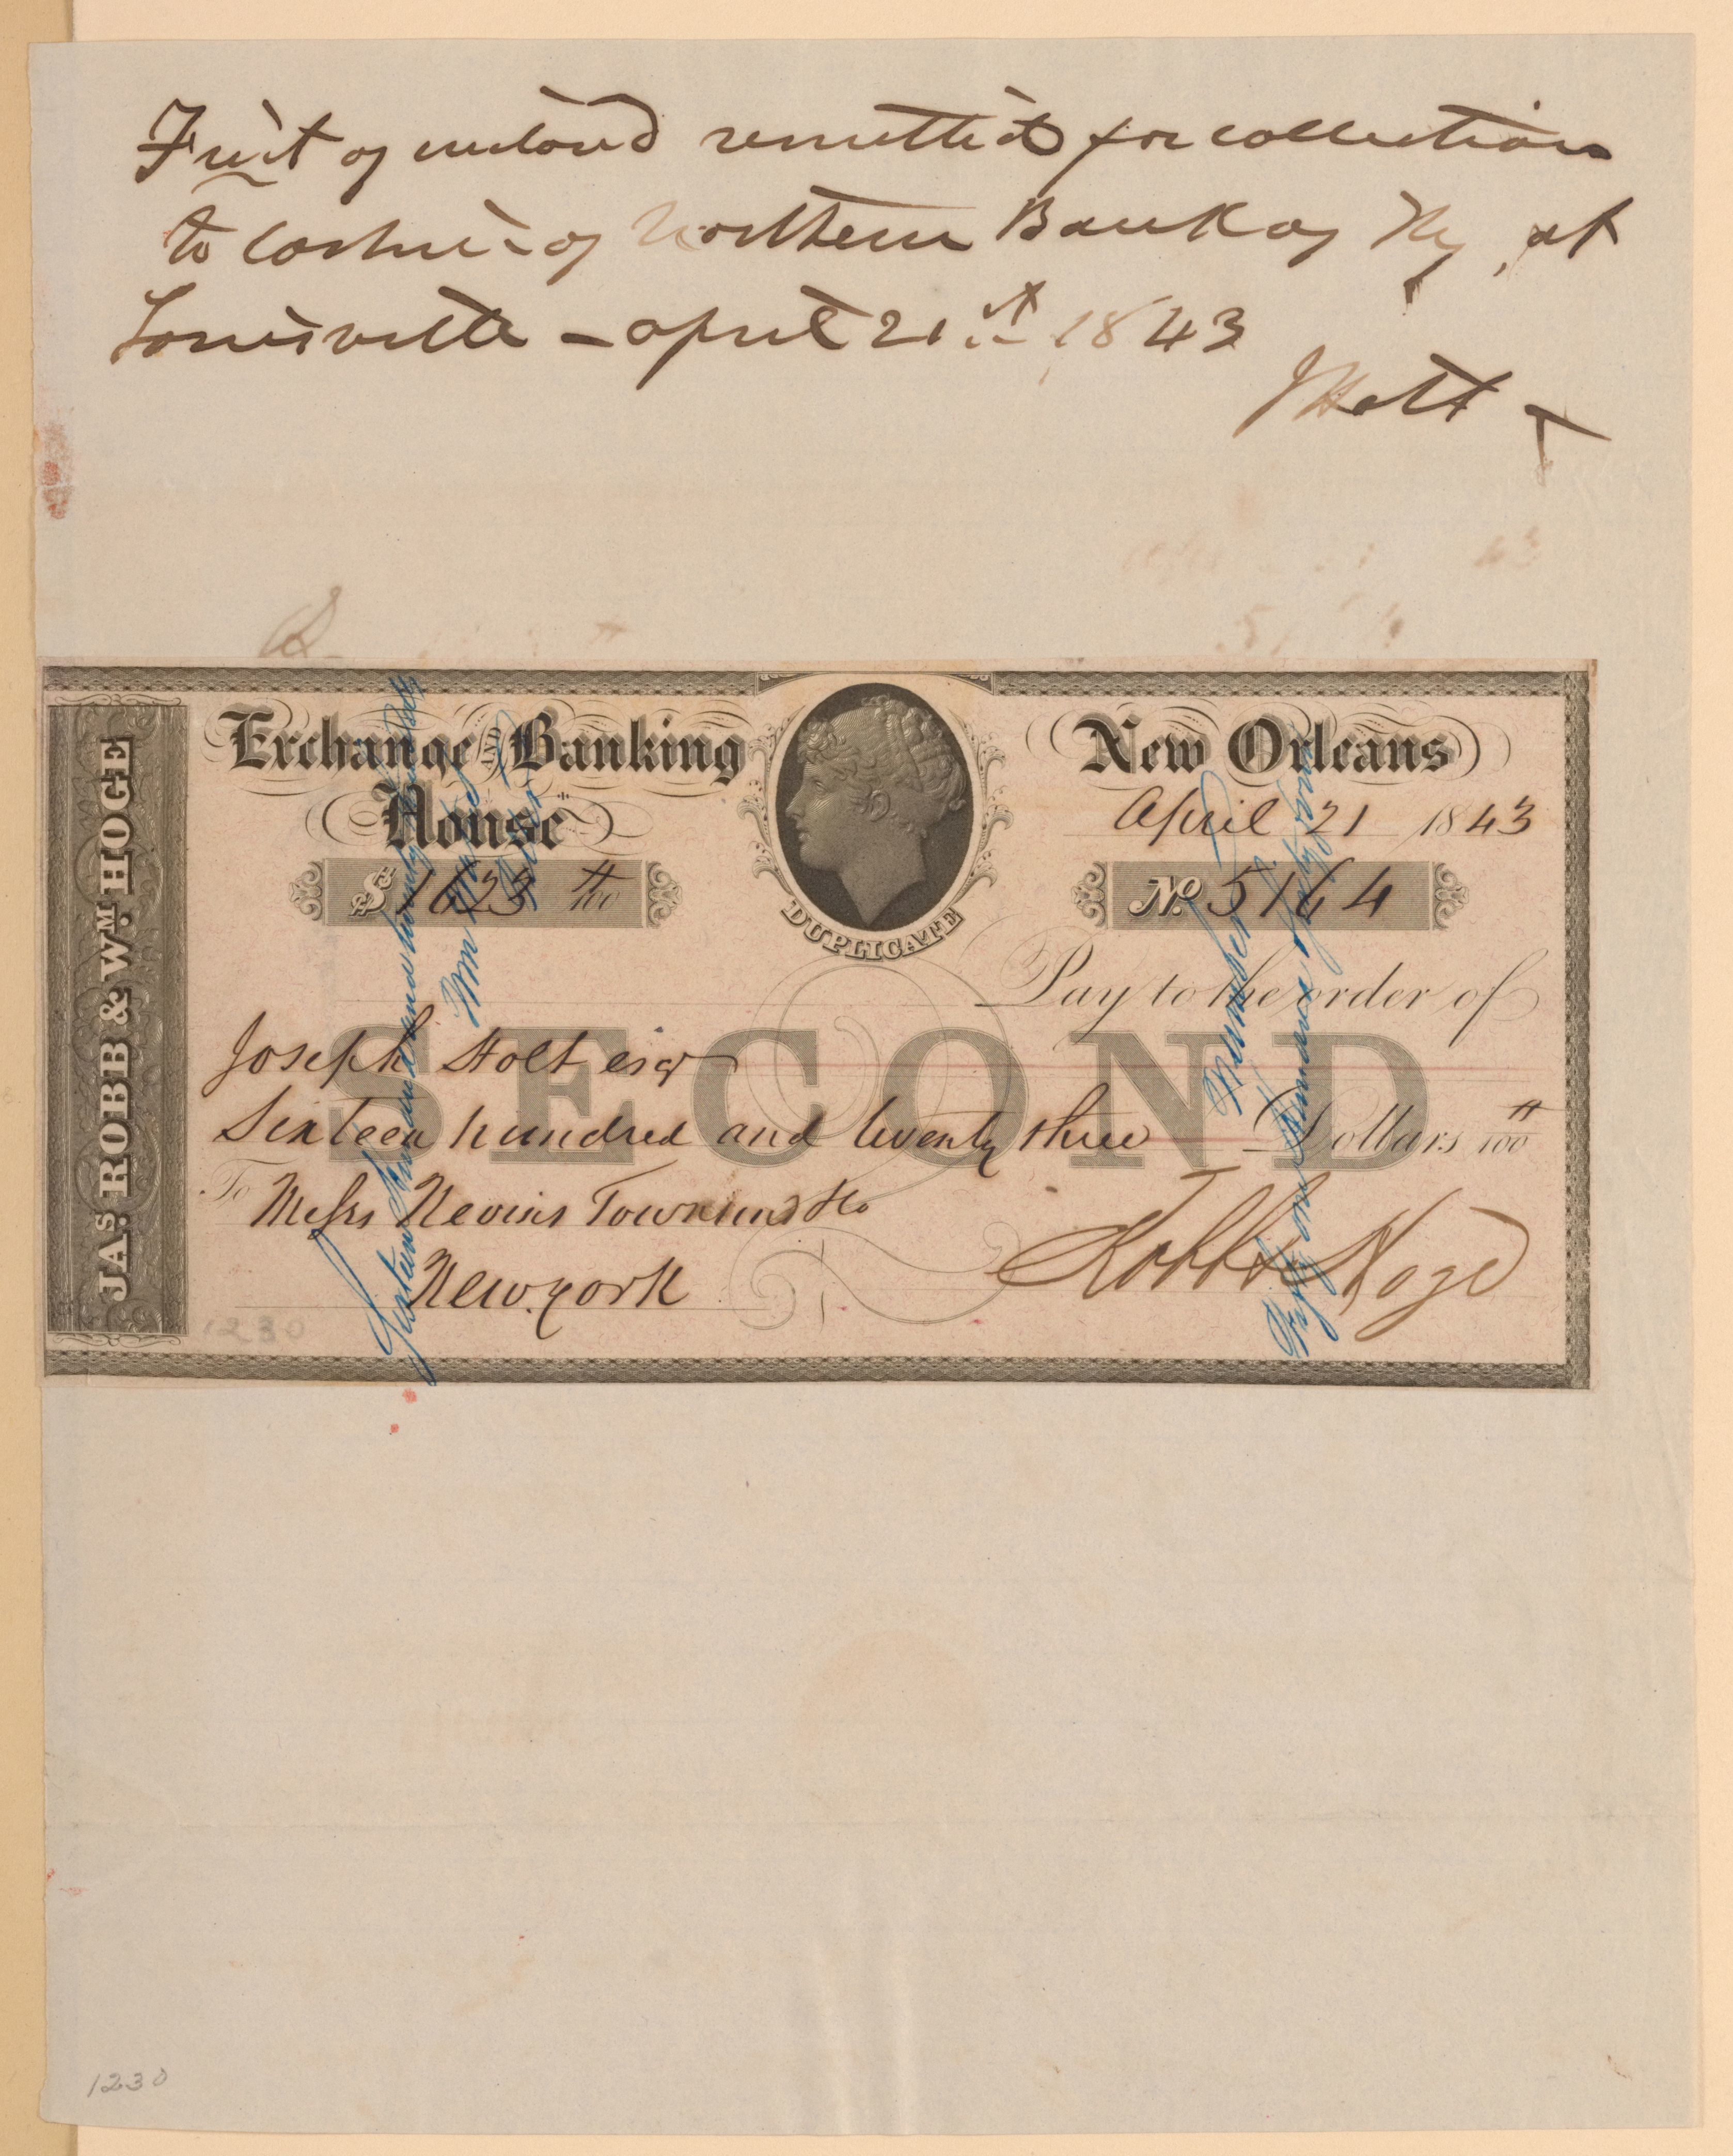 First of enclosed remitted for collection
to Cashier of Northern Bank of Ky, at
Louisville - april 21st 1843
J Holt
JAS. ROBB & WM. HOGE
Exchange AND Banking
House
$ 1623 #/100
DUPLICATE
New Orleans
April 21 1843
No. 5164
Pay to the order of
SECOND
Joseph Holt esqr
Sixteen hundred and twenty three Dollars #/100
To Messrs Nevins Townsend & Co
New. york
Robb & Hoge
Sixteen hundred and twenty
Wm
Number
Fifty one
1230
1230